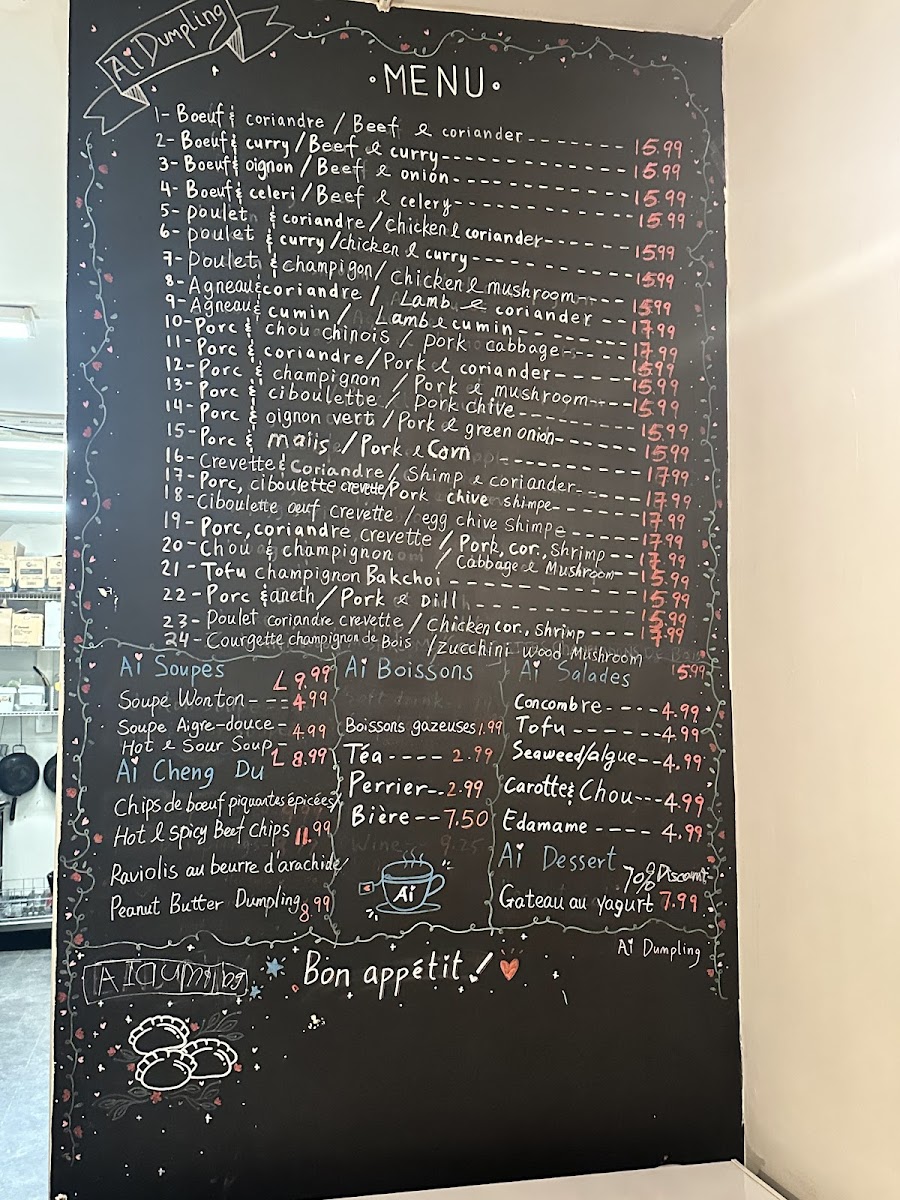 Ai Dumpling
• MENU •
1- Boeuf & coriandre / Beef & coriander ------- 15.99
2- Boeuf & curry / Beef & curry ---------- 15.99
3- Boeuf & oignon / Beef & onion ---------- 15.99
4- Boeuf & celeri / Beef & celery ---------- 15.99
5- poulet & coriandre / chicken & coriander ------ 15.99
6- poulet & curry / chicken & curry ---------- 15.99
7- poulet & champigon / chicken & mushroom --- 15.99
8- Agneau & coriandre / Lamb & coriander -- 17.99
9- Agneau & cumin / Lamb & cumin ------ 17.99
10- Porc & chou chinois / pork cabbage ---- 15.99
11- Porc & coriandre / Pork & coriander ----- 15.99
12- Porc & champignon / Pork & mushroom ---- 15.99
13- Porc & ciboulette / pork chive ------- 15.99
14- Porc & oignon vert / Pork & green onion ------ 15.99
15- Porc & maiis / Pork & Corn ---------- 17.99
16- Crevette & coriandre / Shimp & coriander ---- 17.99
17- Porc, ciboulette crevette/Pork chive shimpe ---- 17.99
18- Ciboulette œuf crevette / egg chive Shimpe 17.99
19- Porc, coriandre, crevette / Pork, cor., shrimp -- 17.99
20- Chou & champignon / Cabbage & Mushroom -- 15.99
21- Tofu champignon Bakchoi ---------- 15.99
22- Porc & aneth / Pork & Dill ---------- 15.99
23- Poulet coriandre crevette / Chicken cor., shrimp --- 17.99
24- Courgette champignon de Bois / Zucchini Wood Mushroom 15.99
Ai Soupes
L 9.99
Soupe Wonton --- 4.99
Soupe Aigre-douce - 4.99
Hot & Sour Soup - L 8.99
Ai Cheng Du
Chips de bœuf piquantes épicées/
Hot & spicy Beef Chips 11.99
Raviolis au beurre d'arachide/
Peanut Butter Dumpling 8.99
Ai Boissons
Boissons gazeuses 1.99
Téa ---- 2.99
Perrier -- 2.99
Bière -- 7.50
Ai
Ai Salades
Concombre ---- 4.99
Tofu ------ 4.99
Seaweed/algue -- 4.99
Carotte & Chou --- 4.99
Edamame ---- 4.99
Ai Dessert
70% Discount
Gateau au yagurt 7.99
Ai Dumpling
Bon appétit!